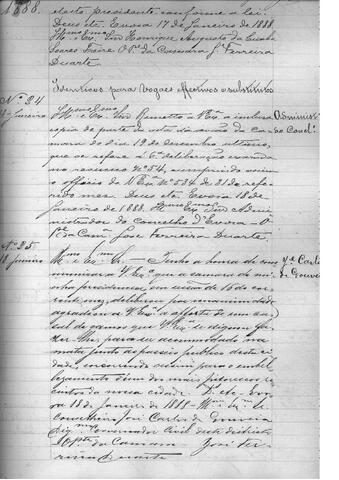 1888.
eleito presidente conforme a lei.
Deus etc. Evora 17 de Janeiro de 1888.
Ill.mo e Ex.mo Snr Henrique Augusto da Cunha
Soares Freire O P. da Camara J. Ferreira
Duarte
Identicos para vogaes effectivos e substitutos
N.º 24
18 Janeiro
Ill.mo e Ex.mo Snr Remetto a V Ex.a a inclusa
copia de parte da acta da sessão da Ca-
mara do dia 19 de dezembro ultimo,
que se refere á 6.a deliberação exarada
no officio de V Ex.a N.º 534 de 31 do refe-
rido mez. Deus etc. Evora 18 de
Janeiro de 1888. Ill.mo Ex.mo Snr Admi-
nistrador do Concelho d'Evora - O
P.te da Cam.a José Ferreira Duarte.
Administ
do Concl.º
N.º 25
18 Janeiro
Ill.mo Ex.mo Sr. - Tenho a honra de com-
municar a V Ex.a que a camara da mi-
nha presidencia, em sessão de 16 do cor-
rente mez, deliberou por unanimidade
agradecer a V Ex.a a offerta de um ca-
sal de gamos que V Ex.a se dignou fa-
zer-lhe, para ser acommodado na
mata junto ao passeio publico desta ci-
dade, concorrendo assim para o embel-
lezamento d'um dos mais pittorescos re-
cintos da nossa cidade. D. etc. Evo-
ra 18 de Janeiro de 1888 - Ill.mo Ex.mo Sr.
Conselheiro José Carlos de Gouveia
Dig.mo Governador Civil deste districto
O P.te da Camara - José Fer-
reira Duarte
José Carlos
de Gouve